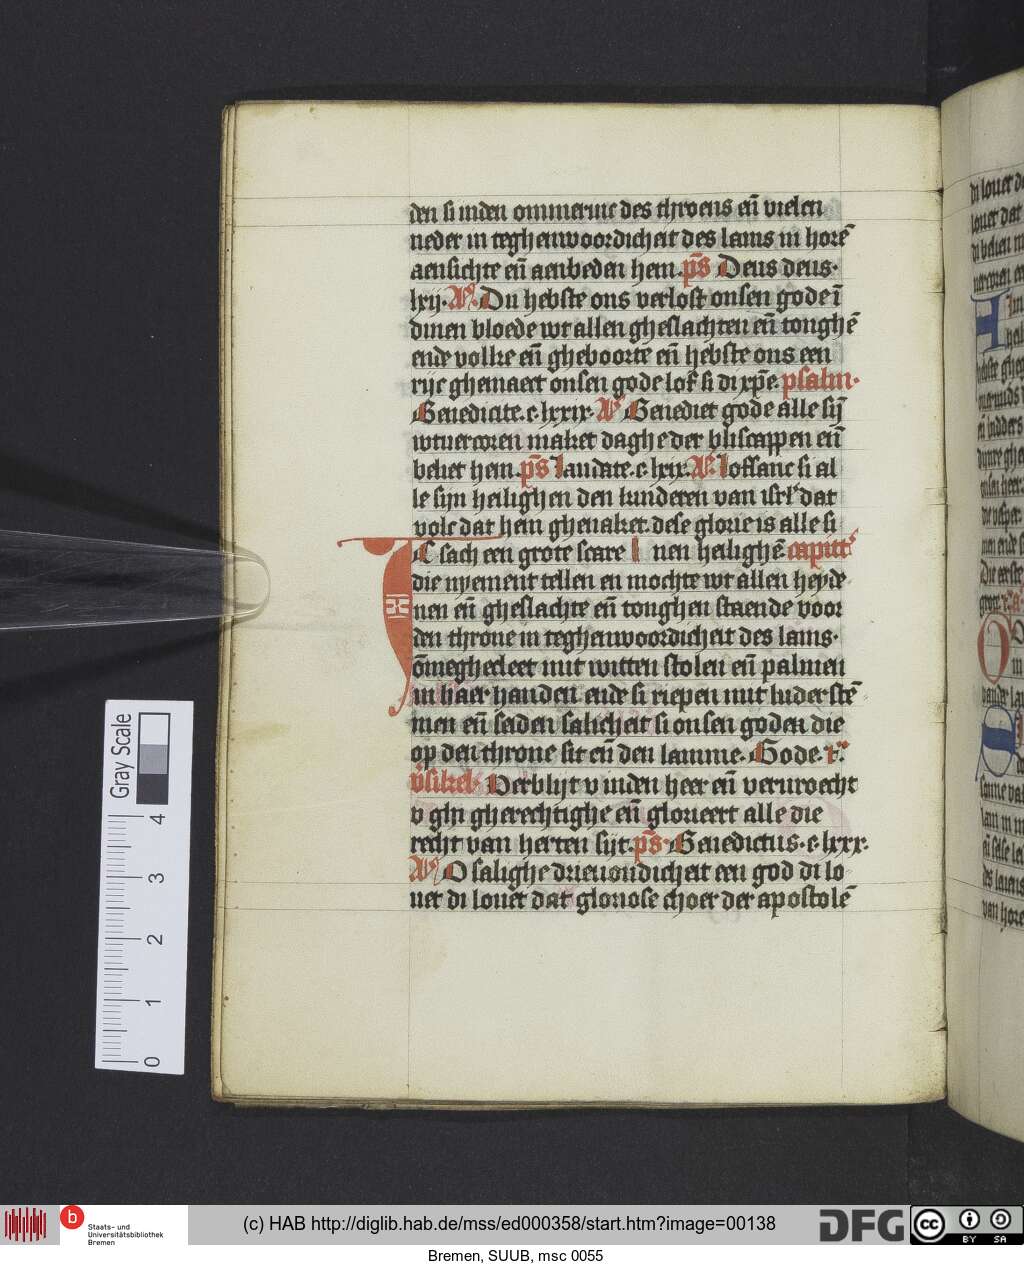 den si inden ommerinc des throens en̄ vielen
neder in teghenwoordicheit des lams in horē
aensichte en̄ aenbeden hem. ps̄ Deus deus·
lxij· Aᵒ. Du hebste ons verlost onsen gode ī
dinen bloede wt allen gheslachten en̄ tonghē
ende volke en̄ gheboorte en̄ hebste ons een
rijc ghemaect onsen gode lof si di xp̄e. psalm·
Benedicite. c. lxxix· Aᵒ Benediet gode alle sijn̄
wtuercoren maket daghe der bliscappen en̄
beliet hem. ps̄ Laudate. c. lxix. Aᵒ. Lofsanc si al
le sijn heilighen den kinderen van isrl' dat
volc dat hem ghenaket. dese glorie is alle si
IC sach een grote scare nen heilighē capittˢ
die nyement tellen en mochte wt allen heyde
nen en̄ gheslachte en̄ tonghen staende voor
den throne in teghenwoordicheit des lams·
ōmeghecleet mit witten stolen en̄ palmen
in haer handen ende si riepen mit luder stē
men en̄ seiden salicheit si onsen goden die
op den throne sit en̄ den lamme. Gode. r.
v̄sikel· Verblijt v inden heer en̄ vervroecht
v ghi gherechtighe en̄ glorieert alle die
recht van herten sijt. ps̄· Benedictus. c. lxxx.
Aᵒ O salighe drieuondicheit een god di lo
uet di louet dat gloriose choer der apostolē
di louet
louet dat
di belien
Gray Scale
4
3
2
1
0
b Staats- und
Universitätsbibliothek
Bremen
(c) HAB http://diglib.hab.de/mss/ed000358/start.htm?image=00138
DFG
cc BY SA
Bremen, SUUB, msc 0055